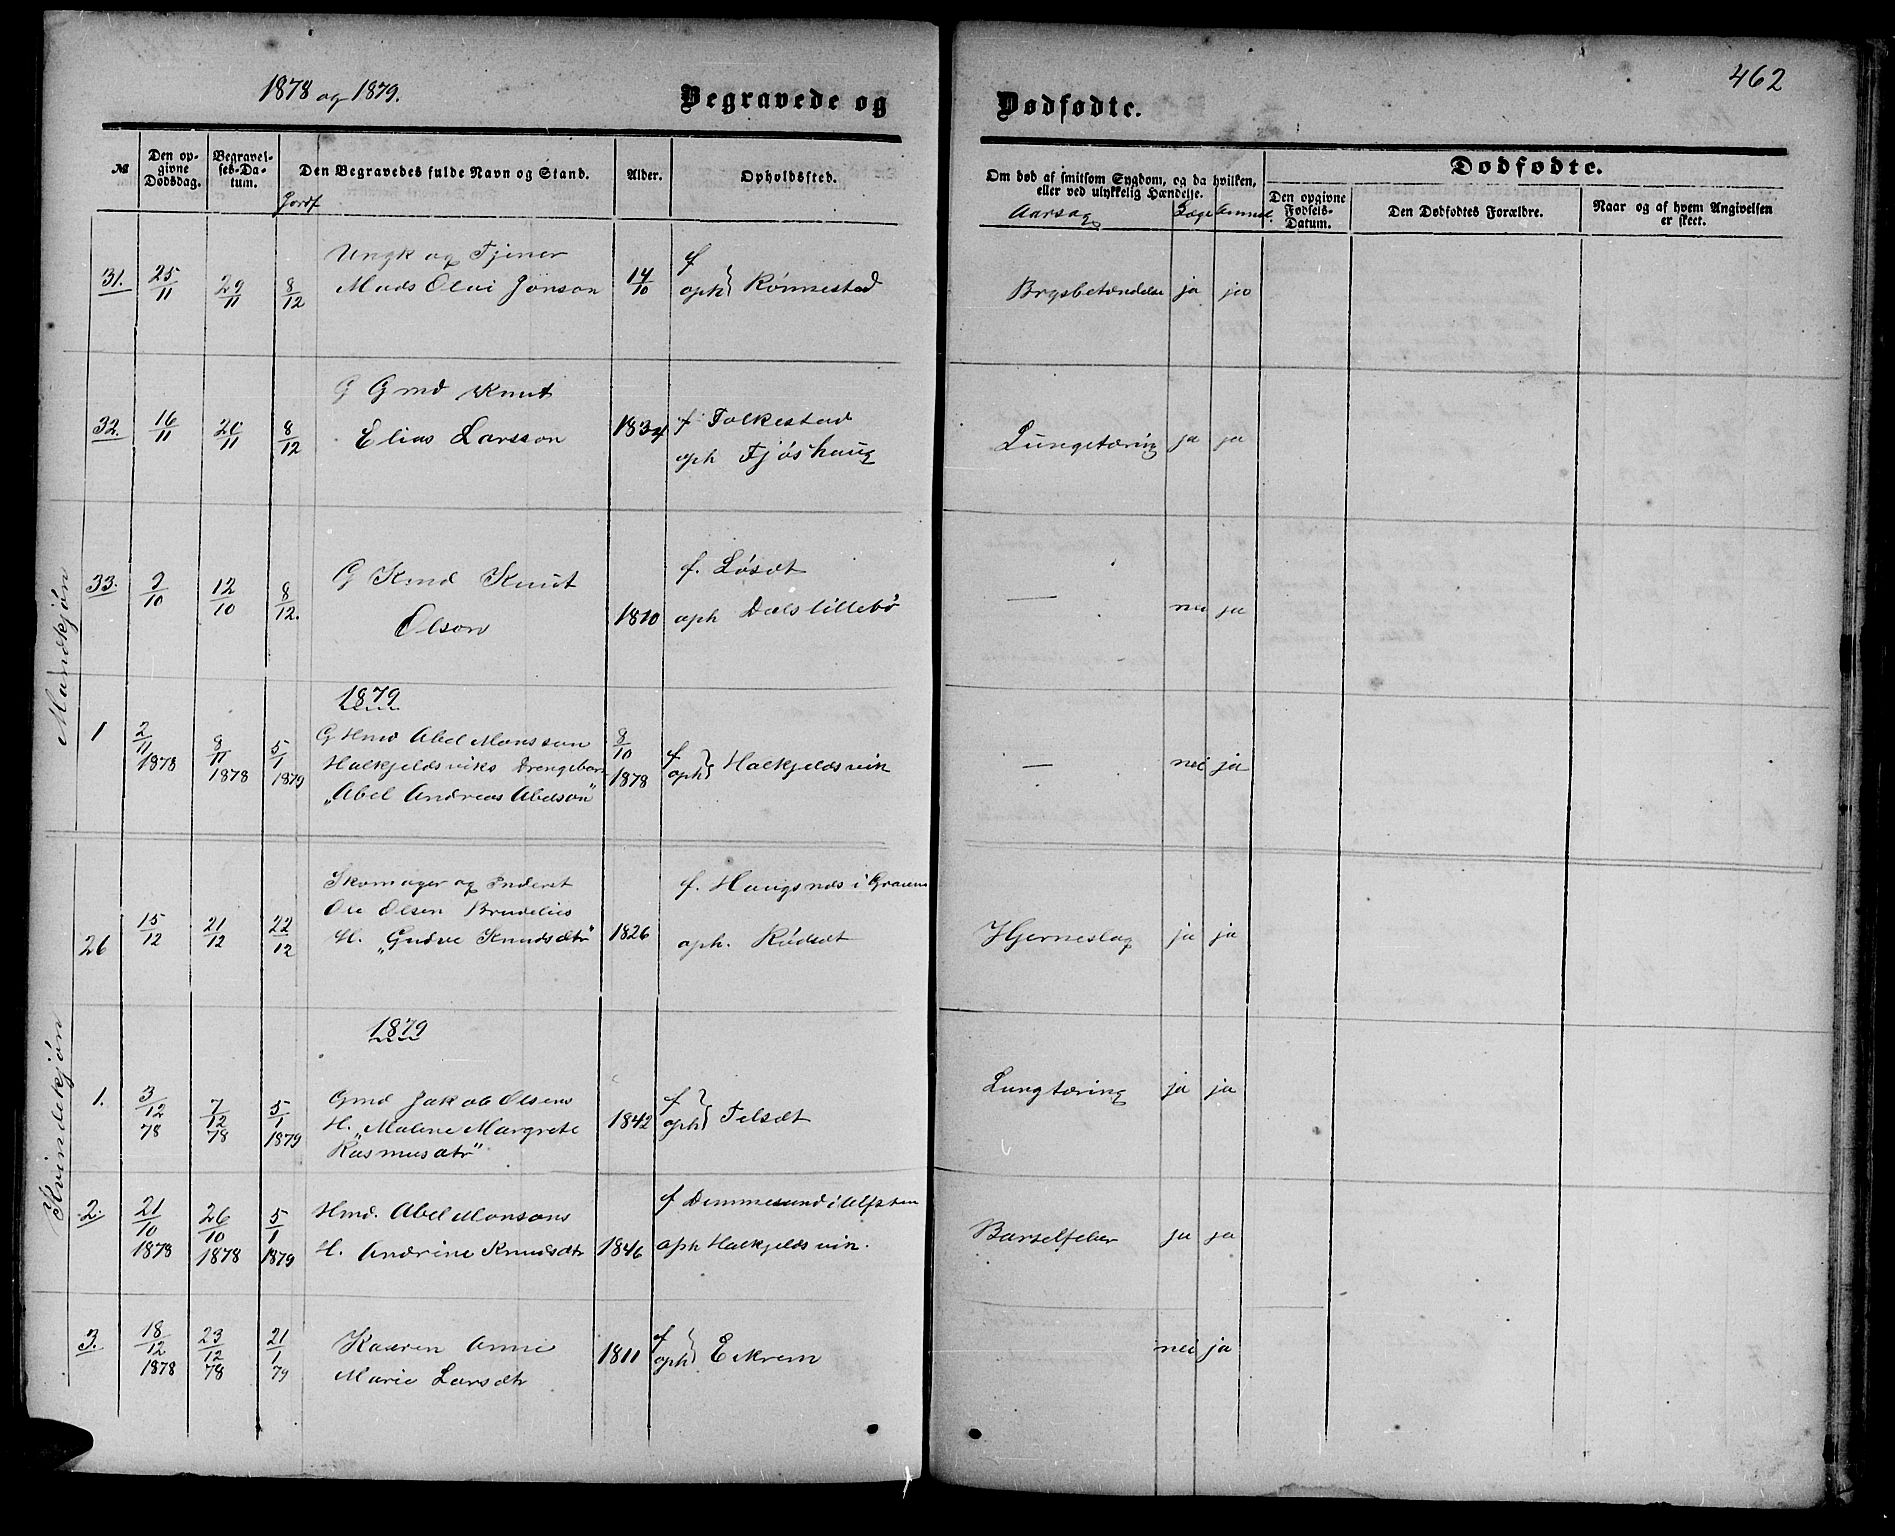 1878 og 1879.
Begravede og
Dødfødte.
462
№
Den opgivne Dødsdag.
Begravelses-Datum.
Jordf
Den Begravedes fulde Navn og Stand.
Alder.
Opholdssted.
Om død af smitsom Sygdom, og da hvilken,
eller ved ulykkelig Hændelse.
Aarsag
Læge
Anmel.
Dødfødte.
Den opgivne Fødsels-Datum.
Den Dødfødtes Forældre.
Naar og af hvem Angivelsen er skeet.
Mandkjøn
Ungk og Tjener
31. 25/11 29/11 8/12 Mads Olai Jonson 14/10 f oph} Rønnestad Brystbetændelse ja ja
G Gmd Knut
32. 16/11 20/11 8/12 Elias Larsson 1834 f. Folkestad
oph Fjøshaug Lungetæring ja ja
33. 2/10 12/10 8/12. G Kmd Knut f. Løsæt
Olson 1810 oph Dalslillebø — nei ja
1879
1 2/11 1878 8/11 1878 5/1 1879 G Hmd Abel Monsson 8/10 1878 f oph} Halkjeldsvik — nei ja
Halkjeldsviks Drengebarn
"Abel Andreas Abelson"
Kvindekjøn
Skomager og Inderst f. Haugsnæs i
Ole Olsen Brudelies
26 15/12 21/12 22/12 H. "Gudve Knudsdtr" 1826 oph. Rødsæt Hjerneslag ja ja
1879
1. 3/12 78 7/12 78 5/1 1879 Gmd Jakob Olsens 1842 f oph} Velsæt Lungtæring ja ja
H. "Malene Margrete
Rasmusdtr"
2. 21/10 1878 26/10 1878 5/1 1879 Hmd. Abel Monsons f Dimmesund i Ulfsten
H. Andrine Knudsdtr 1846 oph Halkjeldsvik. Barselfeber ja ja
3. 18/12 1878 23/12 78 21/1 79 Kaaren Anne 1811 f oph} Eikrem nei ja
Marie Larsdtr